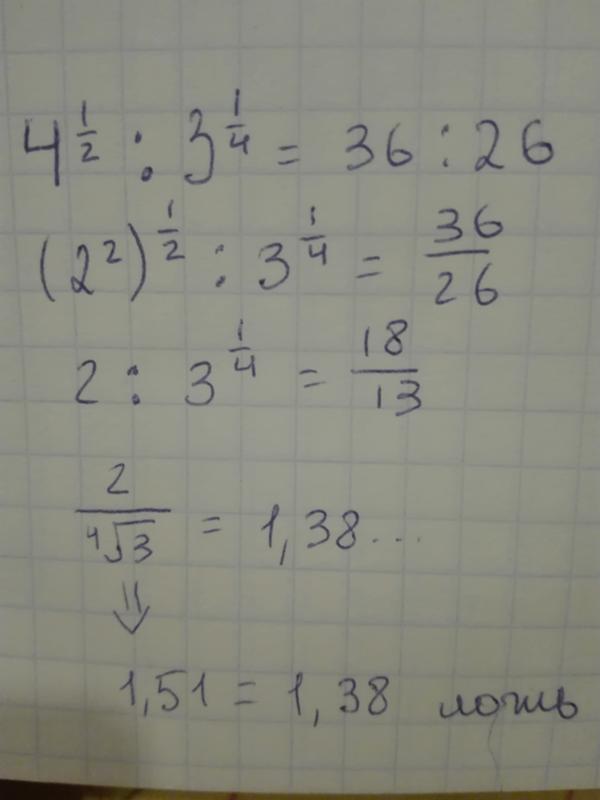 4^{1/2} : 3^{1/4} = 36 : 26
(2²)^{1/2} : 3^{1/4} = 36/26
2 : 3^{1/4} = 18/13
2/⁴√3 = 1,38...
⇓
1,51 = 1,38 ложь